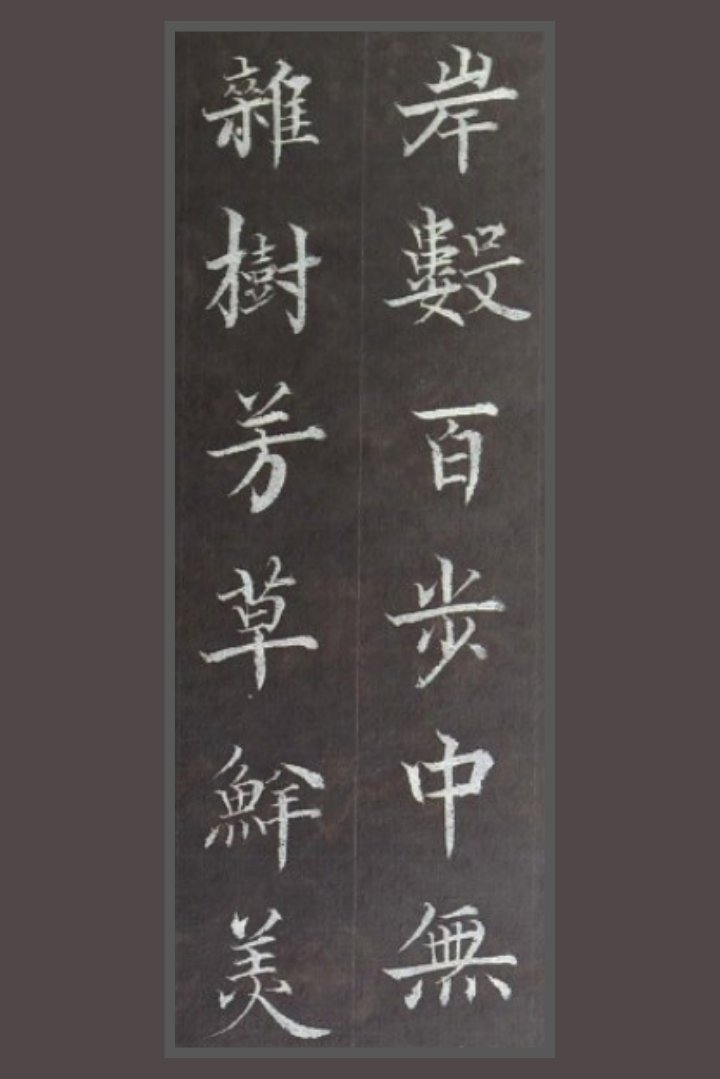 岸數百步中無
雜樹芳草鮮美